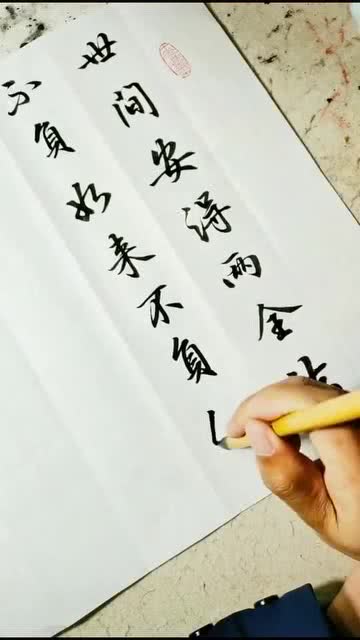 世间安得两全法
不负如来不负